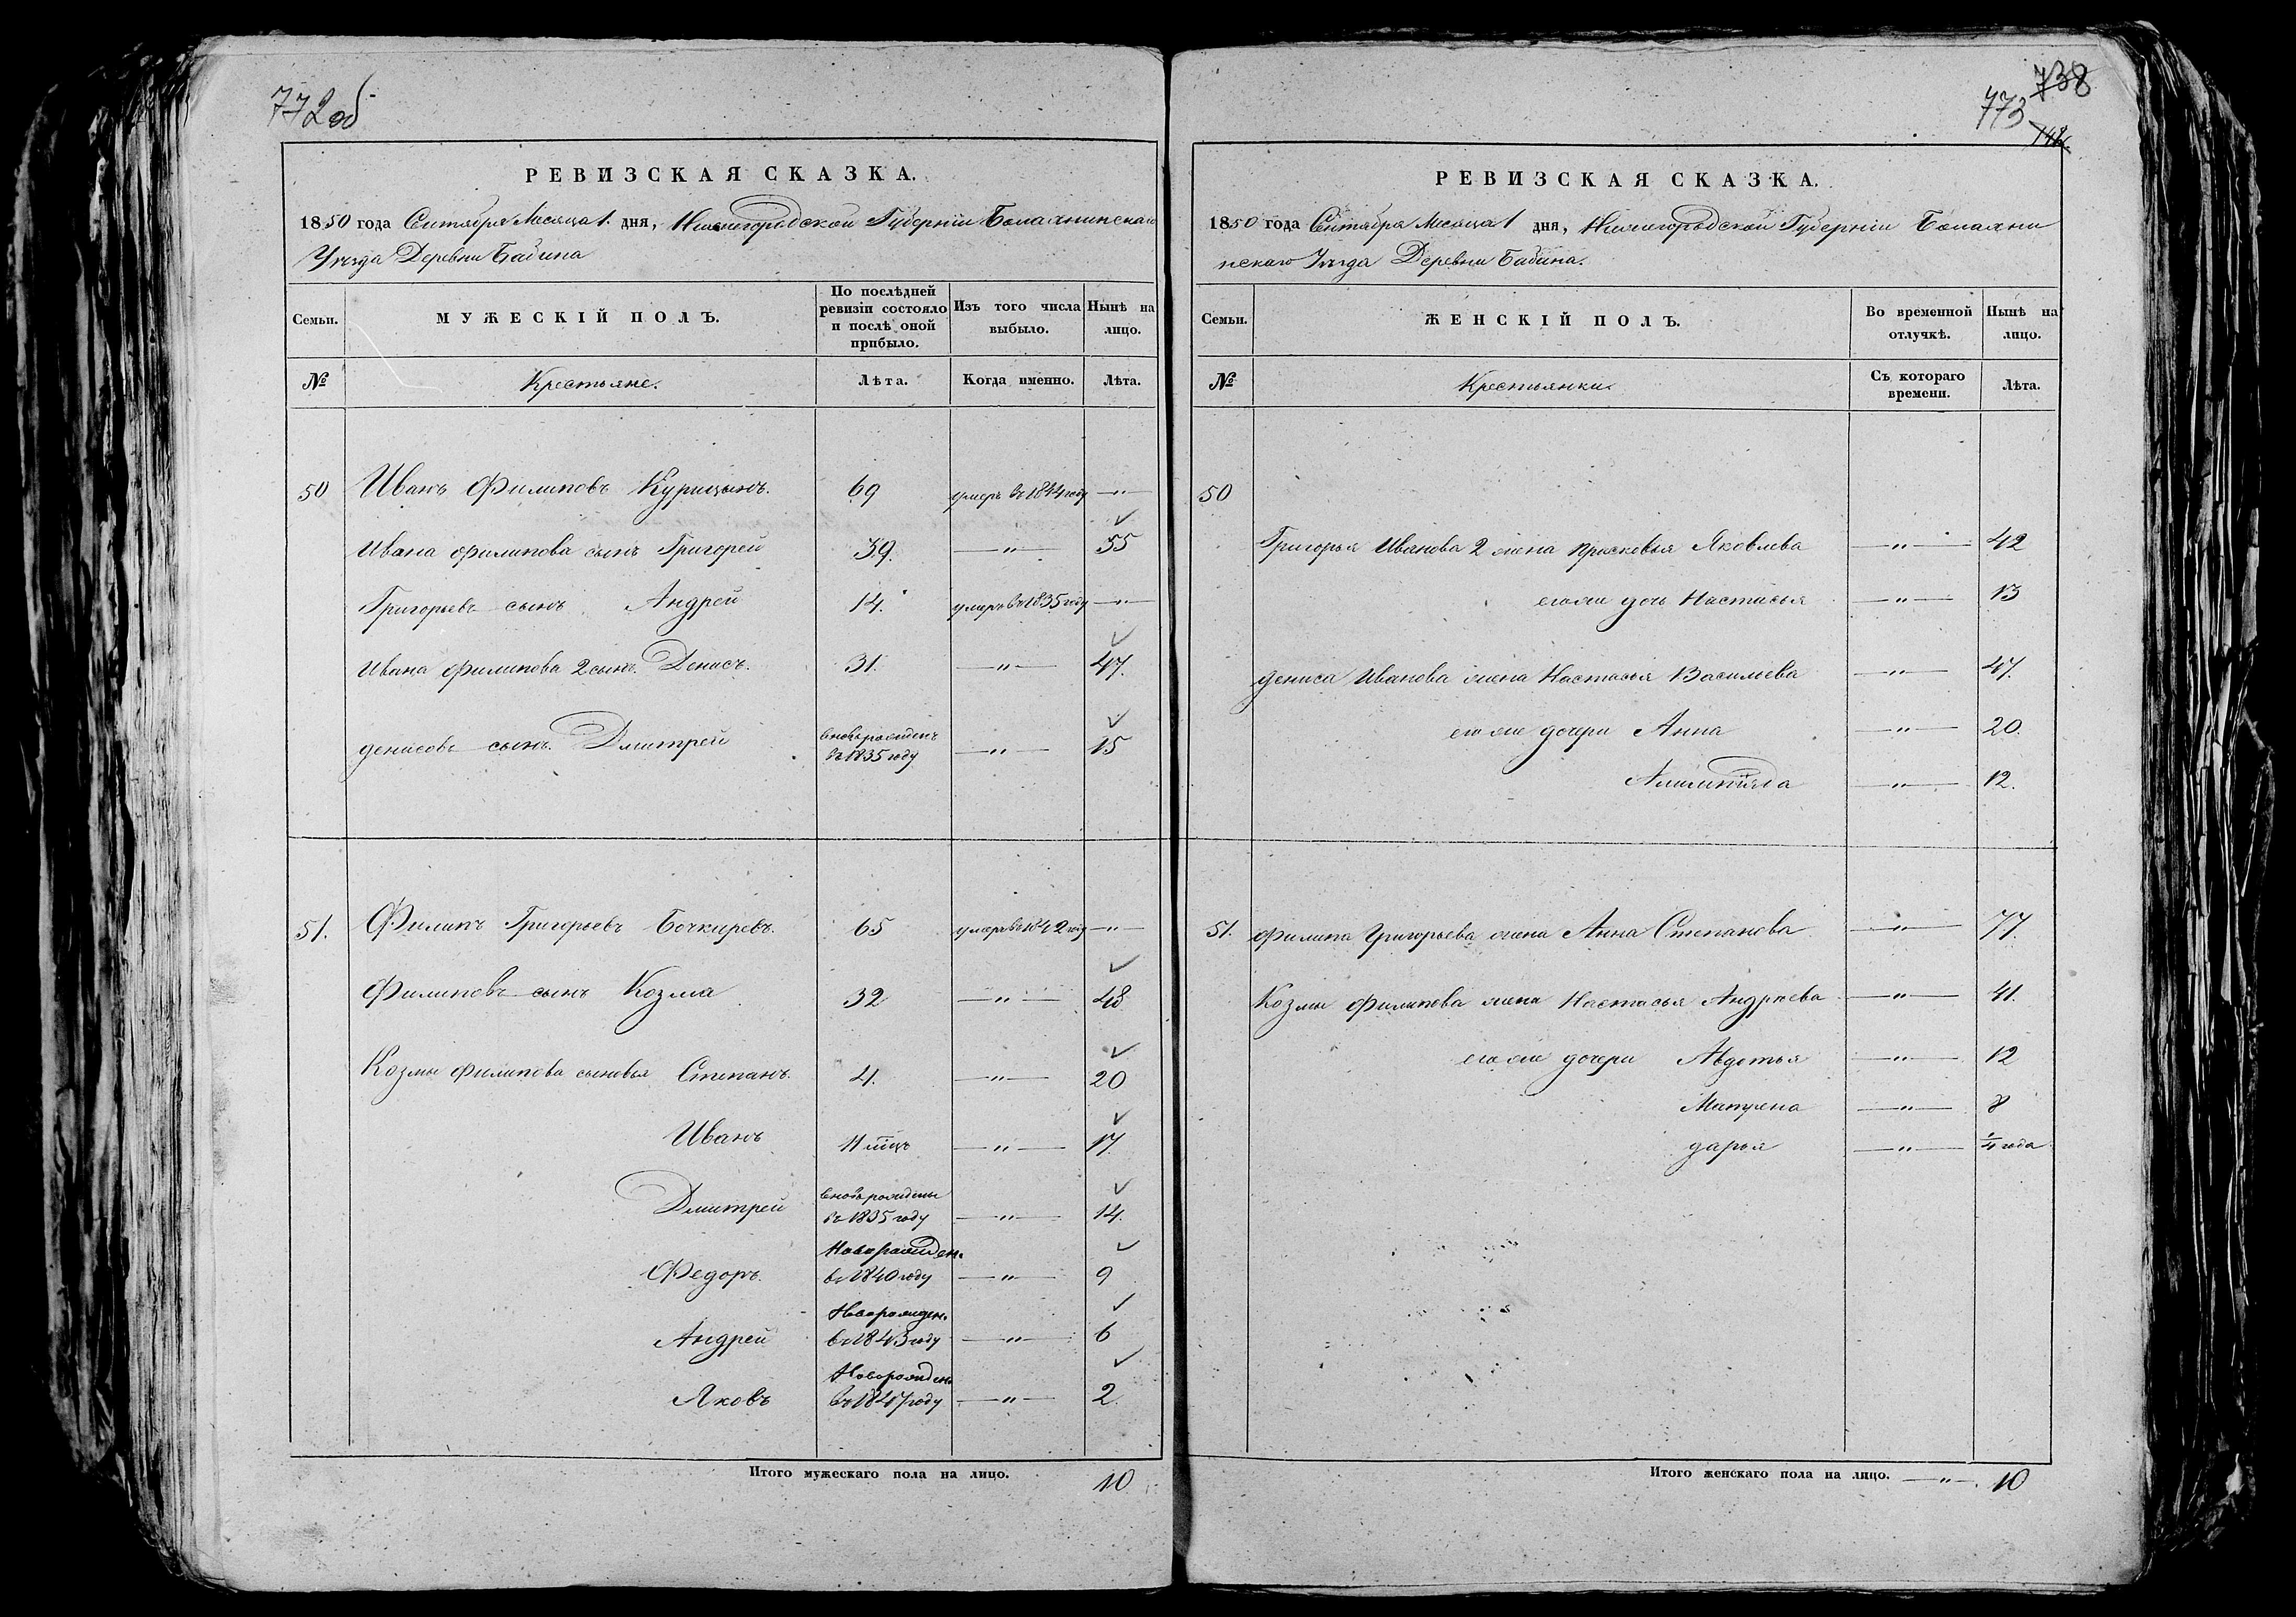 772 об
РЕВИЗСКАЯ СКАЗКА.
1850 года Сентября Месяца 1. дня, Нижегородской Губернiи Балахнинскаго
Уѣзда Деревни Бабина
Семьи.
МУЖЕСКІЙ ПОЛЪ.
По послѣдней ревизіи состояло и послѣ оной прибыло.
Изъ того числа выбыло.
Нынѣ на лицо.
№ Крестьяне. Лѣта. Когда именно. Лѣта.
50 Иванъ Филиповъ Курицынъ. 69 умеръ в 1844 году —"—
Ивана филипова сынъ Григорей 39. —"— 55
Григорьевъ сынъ Андрей 14. умеръ въ 1835 году —"—
Ивана филипова 2 сынъ. Денисъ. 31. —"— 47.
денисовъ сынъ. Дмитрей вновь рожденъ въ 1835 году —"— 15
51. Филипъ Григорьевъ Бочкиревъ. 65 умеръ въ 1842 году —"—
Филиповъ сынъ Козма 32 —"— 48
Козмы филипова сыновья Степанъ. 4. —"— 20
Иванъ 11 мѣцъ —"— 17.
Дмитрей вновь рожденъ въ 1835 году —"— 14.
Федоръ. Новорожден. въ 1840 году —"— 9
Андрей Новорожден. въ 1843 году —"— 6
Яковъ Новорожден. въ 1847 году —"— 2.
Итого мужескаго пола на лицо. 10
738
773
РЕВИЗСКАЯ СКАЗКА.
1850 года Сентября Месяца 1 дня, Нижегородской Губернiи Балахни
нскаго Уѣзда Деревни Бабина.
Семьи.
ЖЕНСКІЙ ПОЛЪ.
Во временной отлучкѣ.
Нынѣ на лицо.
№ Крестьянки. Съ котораго времени. Лѣта.
50
Григорья Иванова 2 жена Прасковья Яковлева —"— 42
его же дочь Настасья —"— 13
дениса Иванова жена Настасья Васильева —"— 47.
его же дочери Анна —"— 20.
—"— 12.
51. филипа Григорьева жена Анна Степанова —"— 77.
Козмы филипова жена Настасья Андрѣева —"— 41.
его же дочери Авдотья —"— 12
Матрена —"— 8
дарья —"— ¼ года
Итого женскаго пола на лицо. —"— 10